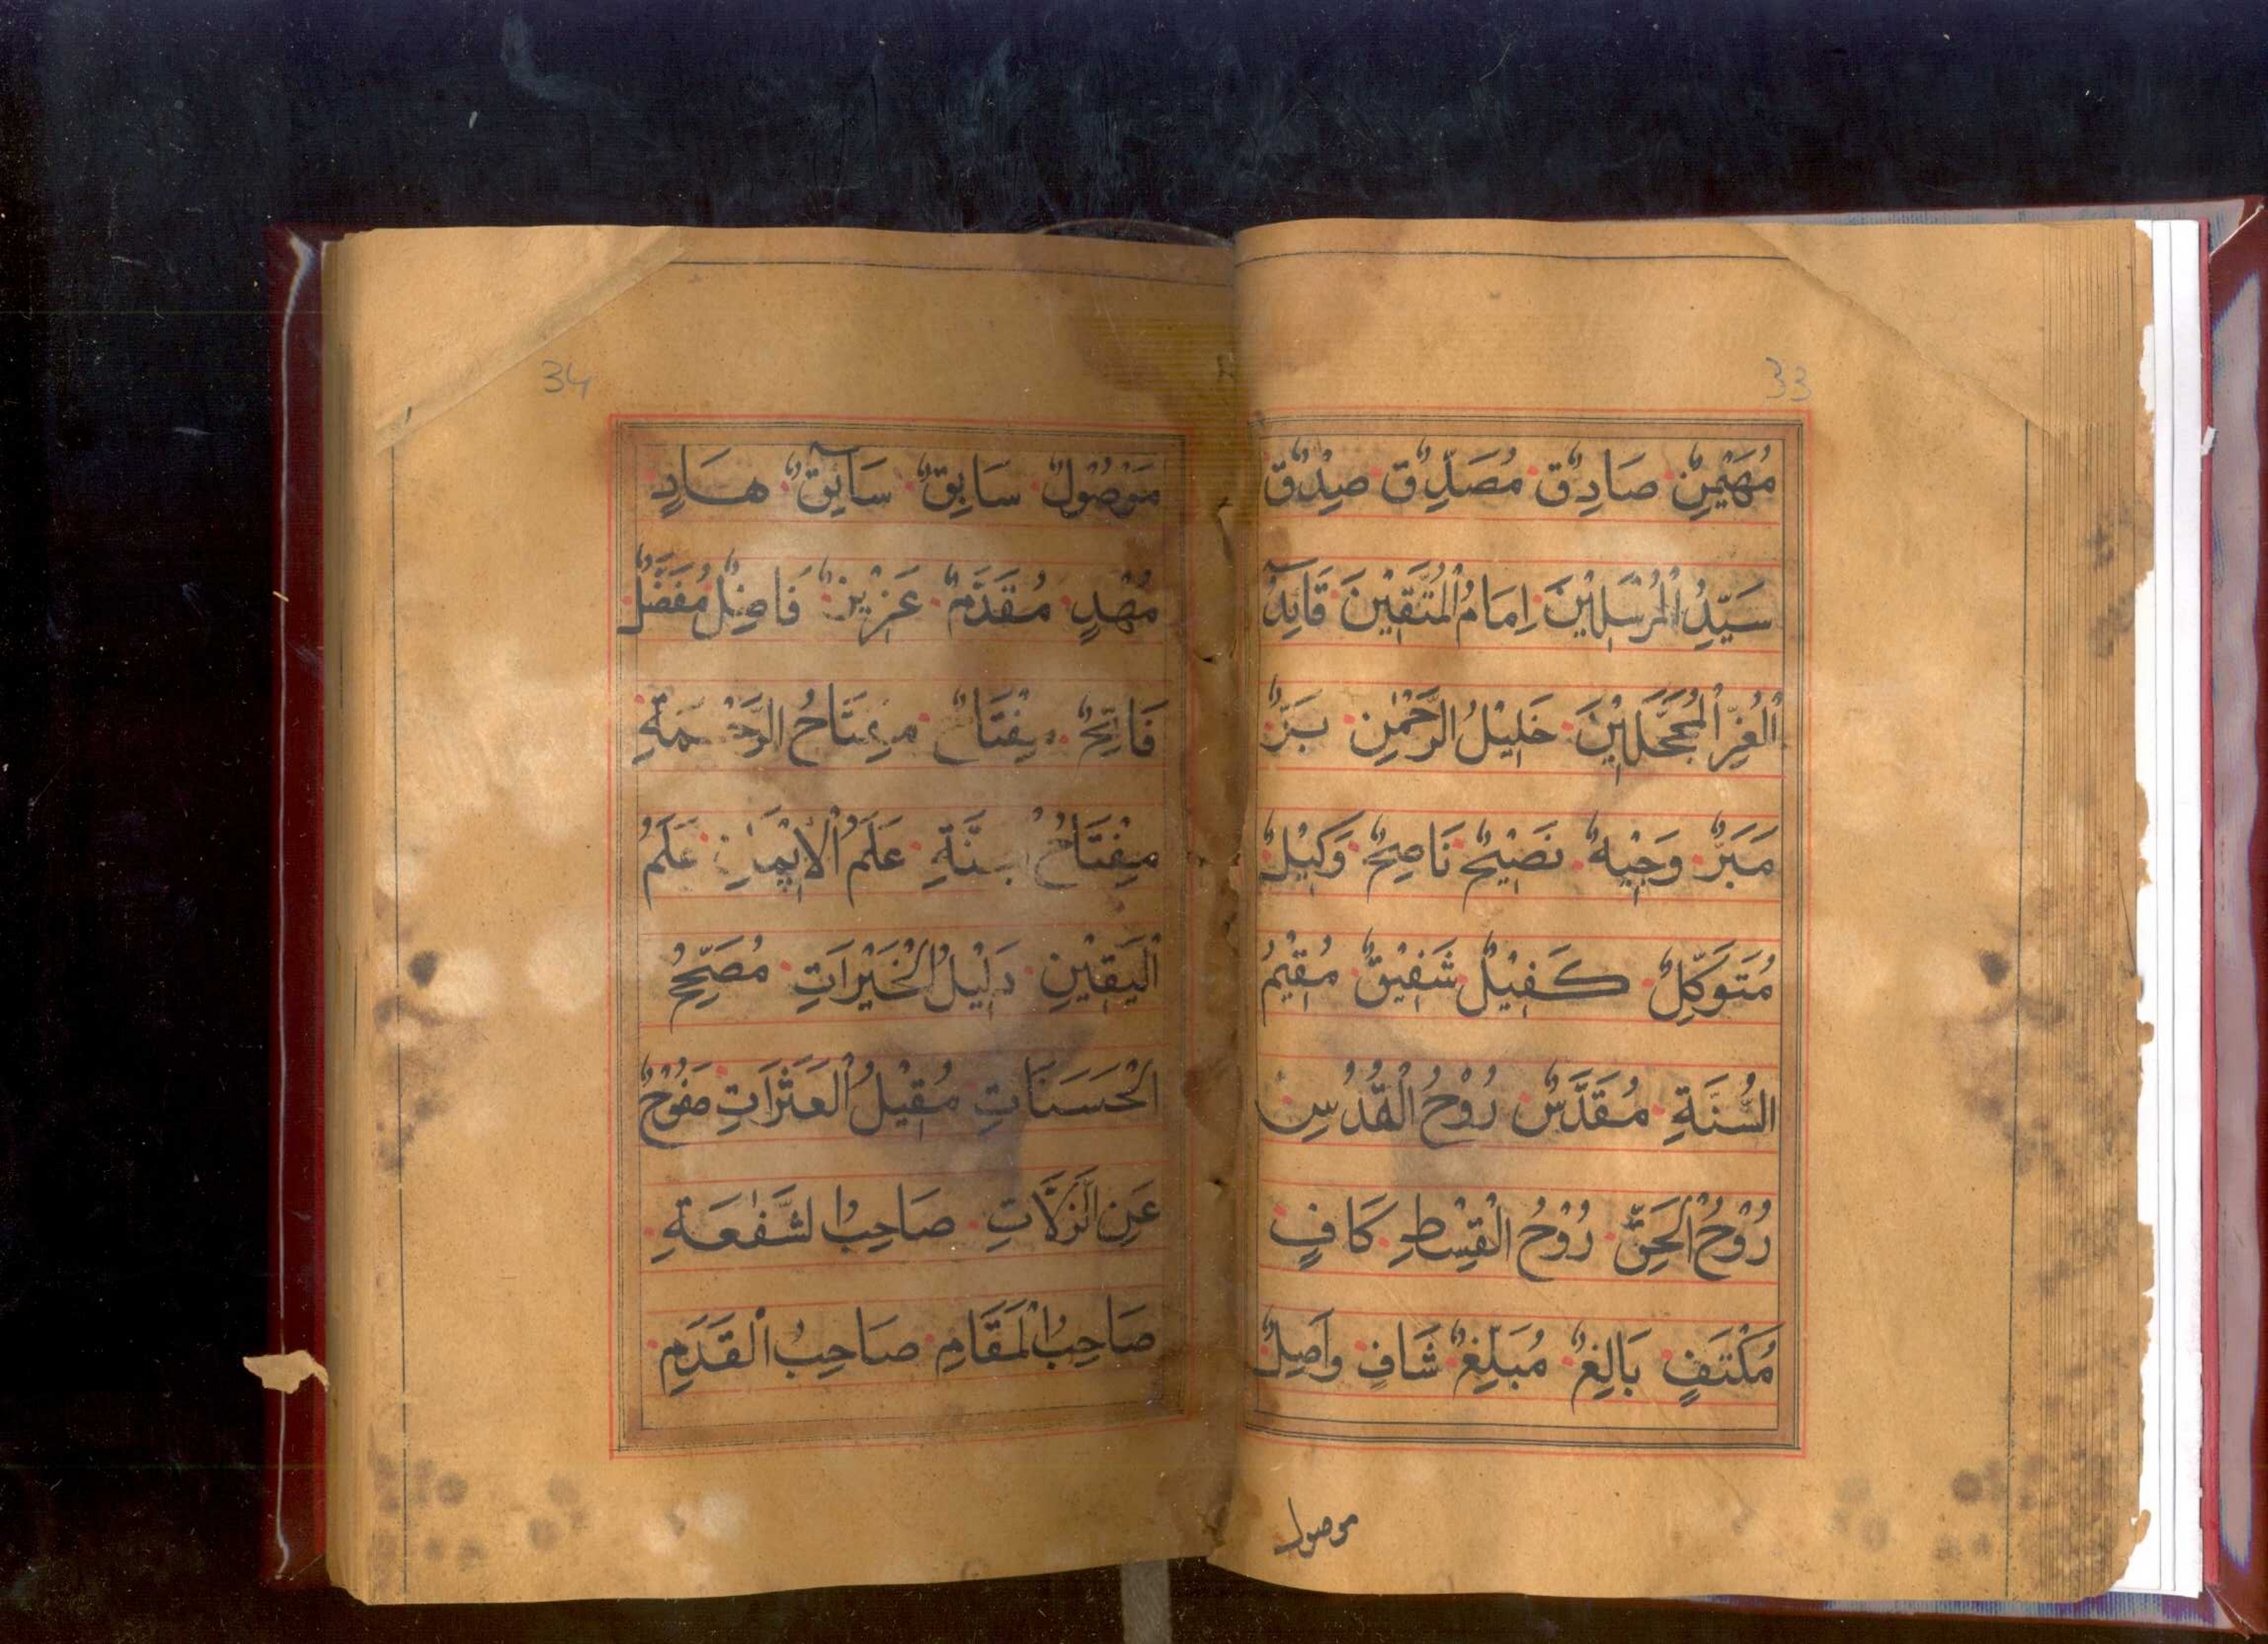 33
مُهَيْمِنٌ صَادِقٌ مُصَدِّقٌ صِدْقٌ
سَيِّدُ الْمُرْسَلِيْنَ اِمَامُ الْمُتَّقِيْنَ قَآئِدُ
الْغُرِّ الْمُحَجَّلِيْنَ خَلِيْلُ الرَّحْمٰنِ بَرٌّ
مَبَرٌّ وَجِيْهٌ نَصِيْحٌ نَاصِحٌ وَكِيْلٌ
مُتَوَكِّلٌ كَفِيْلٌ شَفِيْقٌ مُقِيْمُ
السُّنَّةِ مُقَدَّسٌ رُوْحُ الْقُدُسِ
رُوْحُ الْحَقِّ رُوْحُ الْقِسْطِ كَافٍ
مُكْتَفٍ بَالِغٌ مُبَلِّغٌ شَافٍ وَاصِلٌ
موصول
34
مَوْصُوْلٌ سَابِقٌ سَآئِقٌ هَادٍ
مُهْدٍ مُقَدَّمٌ عَزِيْزٌ فَاضِلٌ مُفَضَّلٌ
فَاتِحٌ مِفْتَاحٌ مِفْتَاحُ الرَّحْمَةِ
مِفْتَاحُ الْجَنَّةِ عَلَمُ الْاِيْمَانِ عَلَمُ
الْيَقِيْنِ دَلِيْلُ الْخَيْرَاتِ مُصَحِّحُ
الْحَسَنَاتِ مُقِيْلُ الْعَثَرَاتِ صَفُوْحٌ
عَنِ الزَّلَّاتِ صَاحِبُ الشَّفٰعَةِ
صَاحِبُ الْمَقَامِ صَاحِبُ الْقَدَمِ